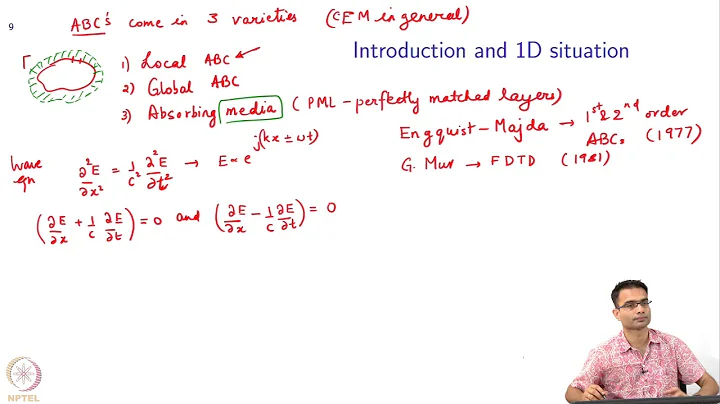 9
ABC's come in 3 varieties (CEM in general)
Introduction and 1D situation
Γ
1) Local ABC
2) Global ABC
3) Absorbing media (PML – perfectly matched layers)
Engquist – Majda → 1st & 2nd order ABCs (1977)
G. Mur → FDTD (1981)
Wave eqn ∂²E/∂x² = 1/c² ∂²E/∂t² → E ∝ e^j(kx ± ωt)
(∂E/∂x + 1/c ∂E/∂t) = 0 and (∂E/∂x − 1/c ∂E/∂t) = 0
NPTEL